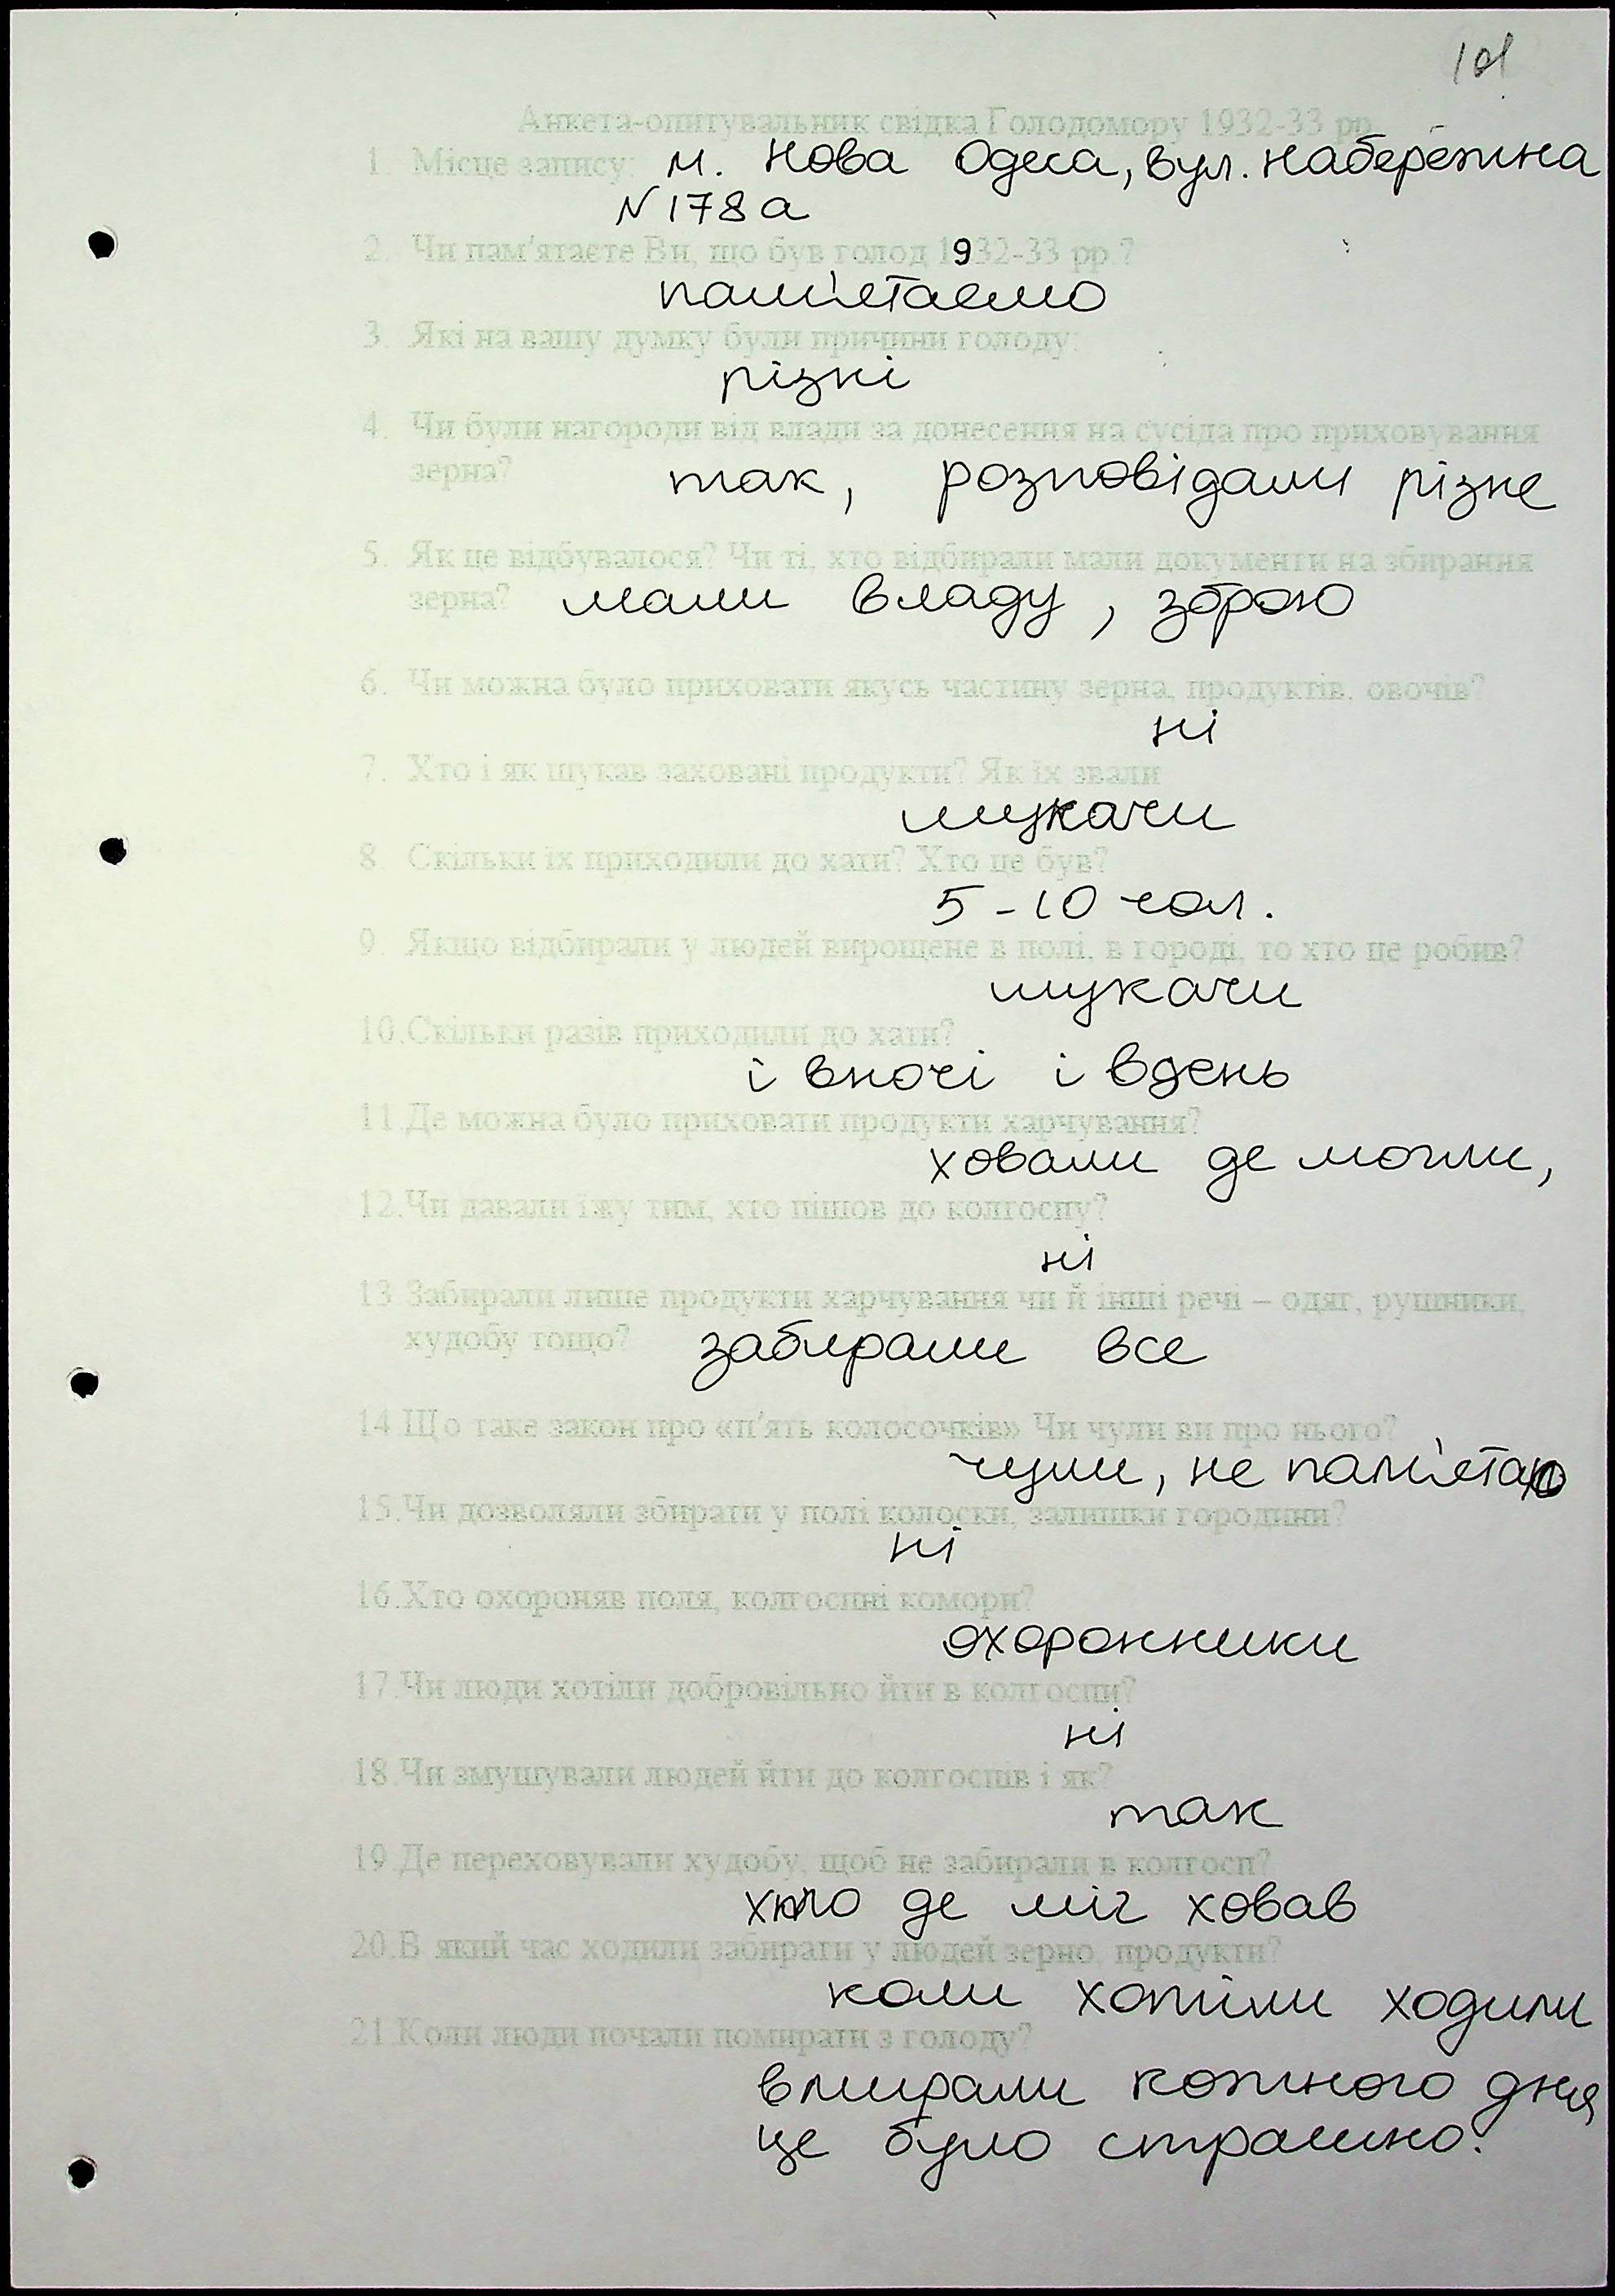 101
Анкета-опитувальник свідка Голодомору 1932-33 рр.
1. Місце запису: м. Нова Одеса, вул. Набережна
№178а
2. Чи пам'ятаєте Ви, що був голод 1932-33 рр.?
пам'ятаємо
3. Які на вашу думку були причини голоду:
різні
4. Чи були нагороди від влади за донесення на сусіда про приховування
зерна? так, розповідали різне
5. Як це відбувалося? Чи ті, хто відбирали мали документи на збирання
зерна? мали владу, зброю
6. Чи можна було приховати якусь частину зерна, продуктів, овочів?
ні
7. Хто і як шукав заховані продукти? Як їх звали
шукачи
8. Скільки їх приходили до хати? Хто це був?
5-10 чол.
9. Якщо відбирали у людей вирощене в полі, в городі, то хто це робив?
шукачи
10.Скільки разів приходили до хати?
і вночі і вдень
11.Де можна було приховати продукти харчування?
ховали де могли,
12.Чи давали їжу тим, хто пішов до колгоспу?
ні
13.Забирали лише продукти харчування чи й інші речі – одяг, рушники,
худобу тощо? забирали все
14.Що таке закон про «п'ять колосочків» Чи чули ви про нього?
чули, не пам'ятаю
15.Чи дозволяли збирати у полі колоски, залишки городини?
ні
16.Хто охороняв поля, колгоспні комори?
охоронники
17.Чи люди хотіли добровільно йти в колгоспи?
ні
18.Чи змушували людей йти до колгоспів і як?
так
19.Де переховували худобу, щоб не забирали в колгосп?
хто де міг ховав
20.В який час ходили забирати у людей зерно, продукти?
коли хотіли ходили
21.Коли люди почали помирати з голоду?
вмирали кожного дня
це було страшно.